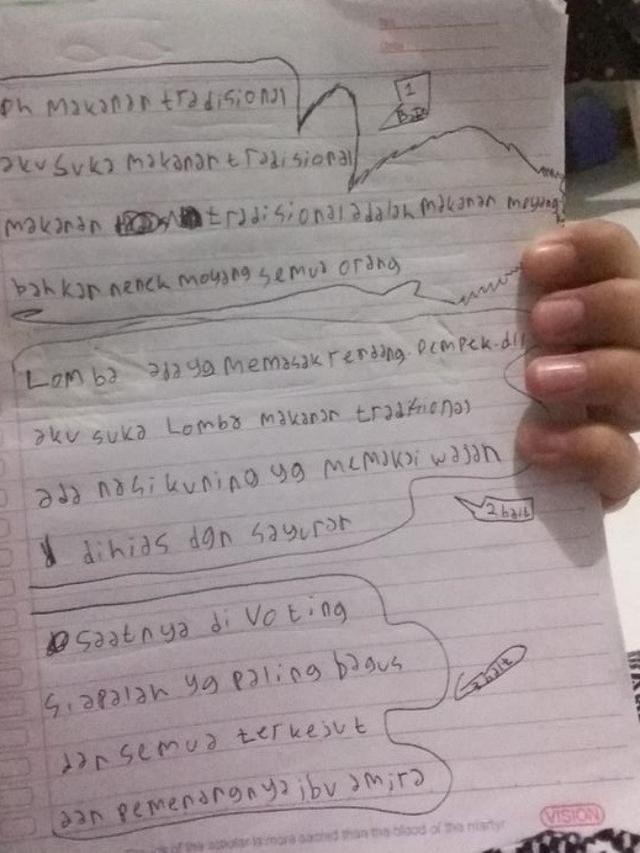 Oh makanan tradisional
1
Bait
aku suka makanan tradisional
makanan tradisional adalah makanan moyang
bahkan nenek moyang semua orang
Lomba ada yg memasak rendang. pempek. dll
aku suka Lomba makanan tradisional
ada nasi kuning yg memakai wajan
dihias dgn sayuran
2 bait
saatnya di Voting
siapalah yg paling bagus
bait
dan semua terkejut
dan pemenangnya ibu amira
VISION
of the scholar is more sacred than the blood of the martyr